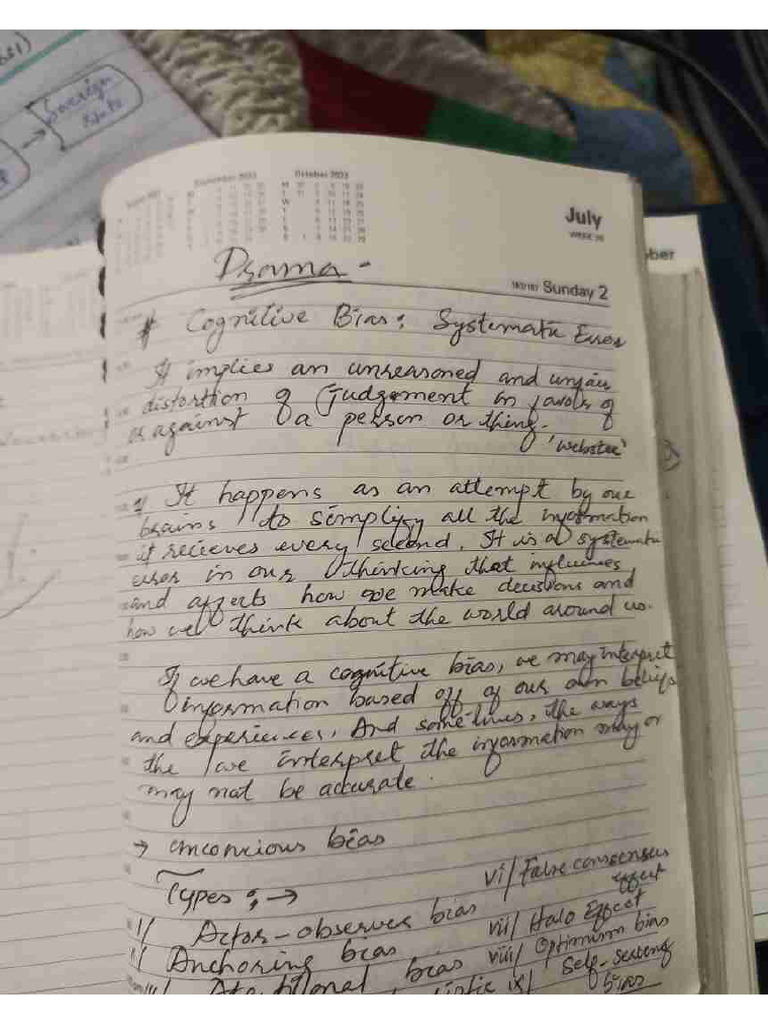 Sovereign
State
October 2023
July
Sunday 2
Drama -
# Cognitive Bias : Systematic Error
It implies an unreasoned and unfair
distortion of judgement in favour of
or against a person or thing.
'Webster'
It happens as an attempt by our
brains to simplify all the information
it recieves every second. It is a systematic
error in our thinking that influences
and affects how we make decisions and
how we think about the world around us.
If we have a cognitive bias, we may interpret
information based off of our own beliefs
and experiences. And sometimes, the ways
the we interpret the information may or
may not be accurate.
→ unconcious bias
Types : →
i/ Actor-observer bias
ii/ Anchoring bias
Attentional bias
vi/ False consensus
effect
vii/ Halo Effect
viii/ Optimism bias
ix/ Self-serving
bias